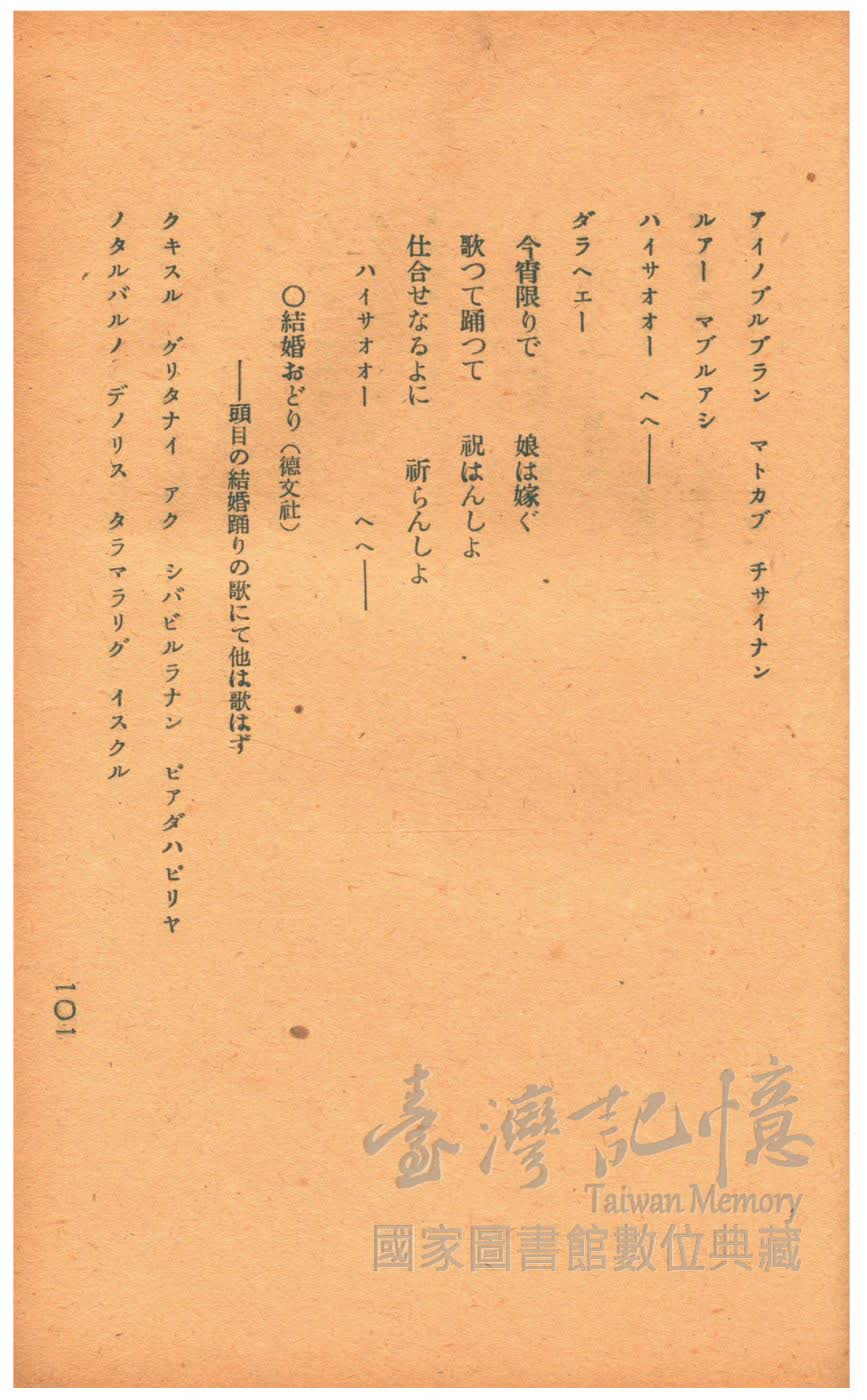 アイノブルブラン　マトカブ　チサイナン
ルアー　マブルアシ
ハイサオオー　へヘ――
ダラヘエー
今宵限りで　娘は嫁ぐ
歌つて踊つて　祝はんしよ
仕合せなるよに　祈らんしよ
ハイサオオー　へヘ――
〇結婚おどり（德文社）
――頭目の結婚踊りの歌にて他は歌はず
クキスル　グリタナイ　アク　シバビルラナン　ピアダハピリヤ
ノタルバルノ　デノリス　タラマラリグ　イスクル
1〇1
臺灣記憶
Taiwan Memory
國家圖書館數位典藏